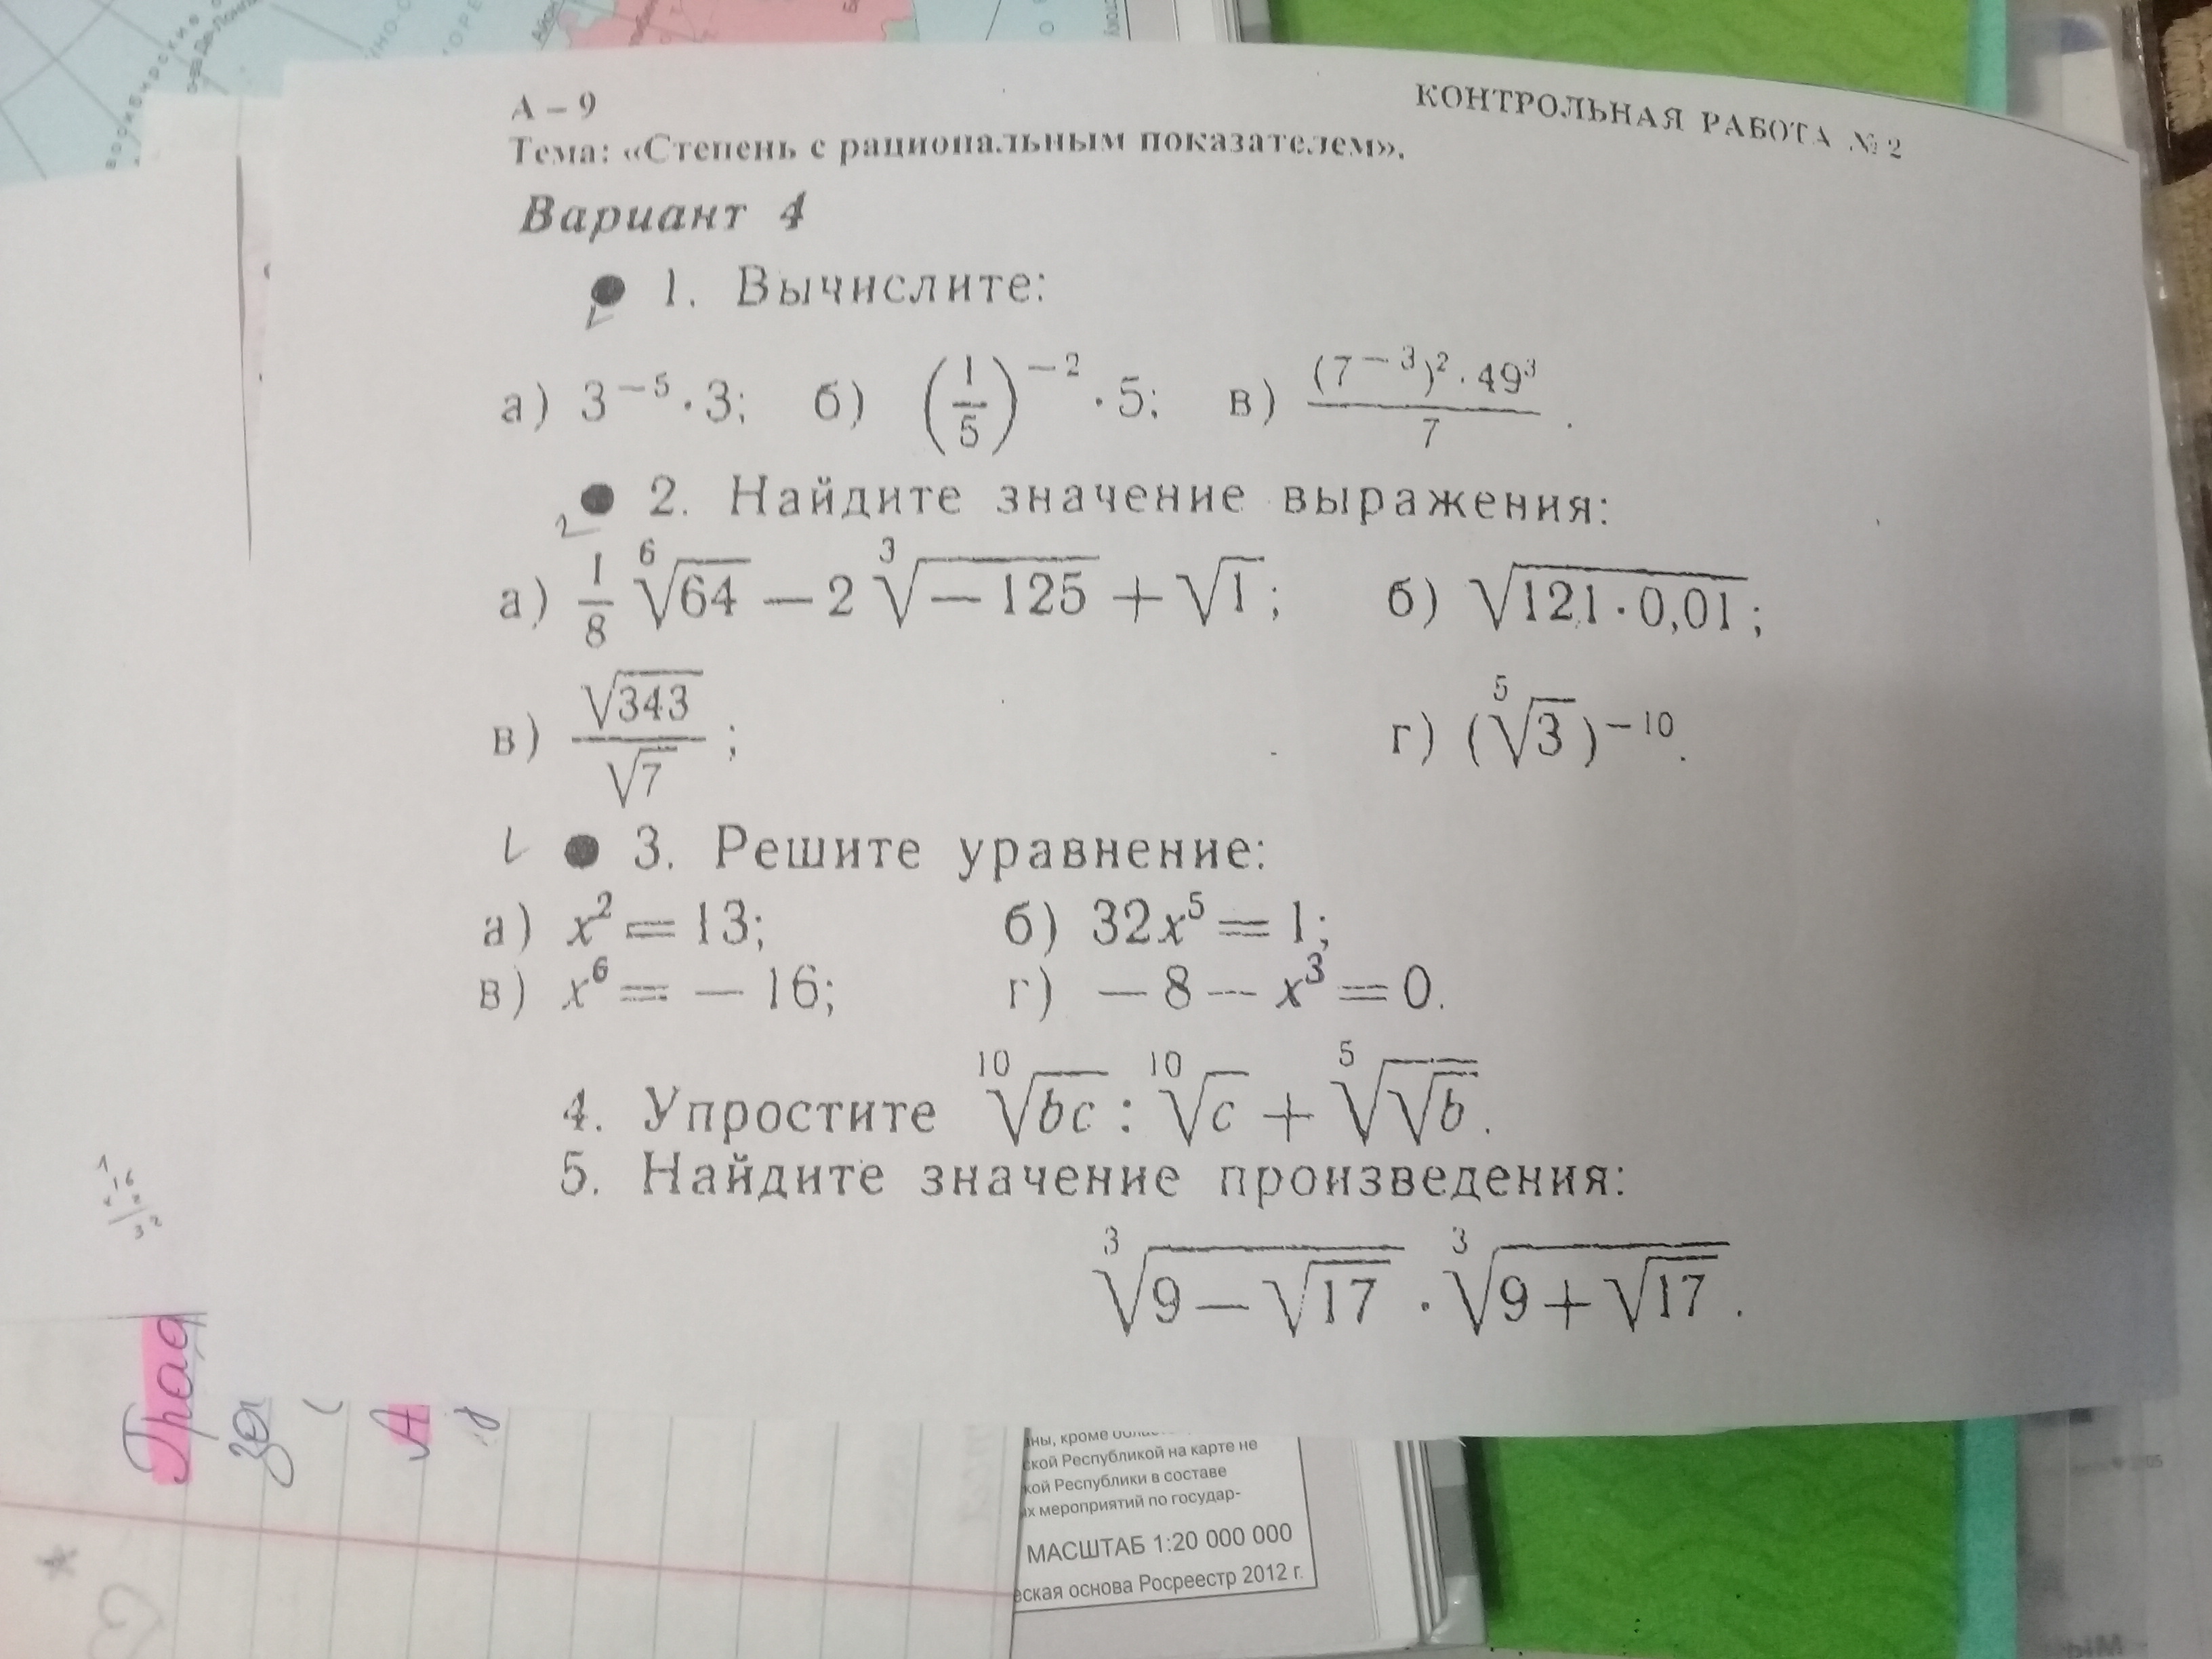 А – 9 КОНТРОЛЬНАЯ РАБОТА № 2
Тема: «Степень с рациональным показателем».
Вариант 4
● 1. Вычислите:
а) 3⁻⁵ · 3; б) (1/5)⁻² · 5; в) (7⁻³)² · 49³ / 7 .
● 2. Найдите значение выражения:
а) 1/8 ⁶√64 − 2 ³√−125 + √1; б) √121 · 0,01;
в) √343 / √7 ; г) (⁵√3)⁻¹⁰.
● 3. Решите уравнение:
а) x² = 13; б) 32x⁵ = 1;
в) x⁶ = − 16; г) − 8 − x³ = 0.
4. Упростите ¹⁰√bc : ¹⁰√c + ⁵√√b.
5. Найдите значение произведения:
³√9 − √17 · ³√9 + √17 .
кой Республикой на карте не
кой Республики в составе
х мероприятий по государ-
МАСШТАБ 1:20 000 000
еская основа Росреестр 2012 г.